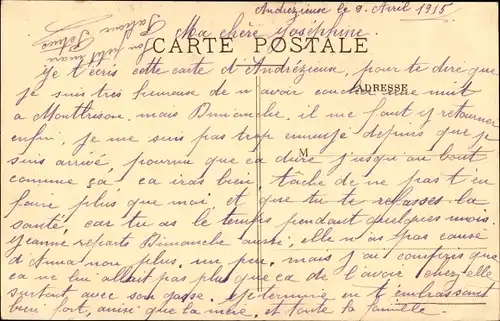 Andrézieux le 8 Avril 1915
Ma chère Joséphine
CARTE POSTALE
ton petit mari
Je t'écris cette carte d'Andrézieux, pour te dire que
je suis très heureuse de n'avoir coucher une nuit
ADRESSE
a Montbrison, mais Dimanche, il me faut y retourner
enfin, je me suis pas trop ennuyé depuis que je
suis arrivé, pourvu que ca dure jusqu'au bout
M
comme ça, ca iras bien, tâche de ne pas t'en
faire plus que moi, et que tu te refasses la
santé, car tu as le temps pendant quelques mois
Jeanne reparts Dimanche aussi, elle n'as pas causé
d'Anna non plus, un peu, mais j'ai compris que
ca ne lui allait pas plus que ca de l'avoir chez elle
surtout avec son gosse. Je termine en t'embrassant
bien fort, ainsi que ta mère, et toute la famille.